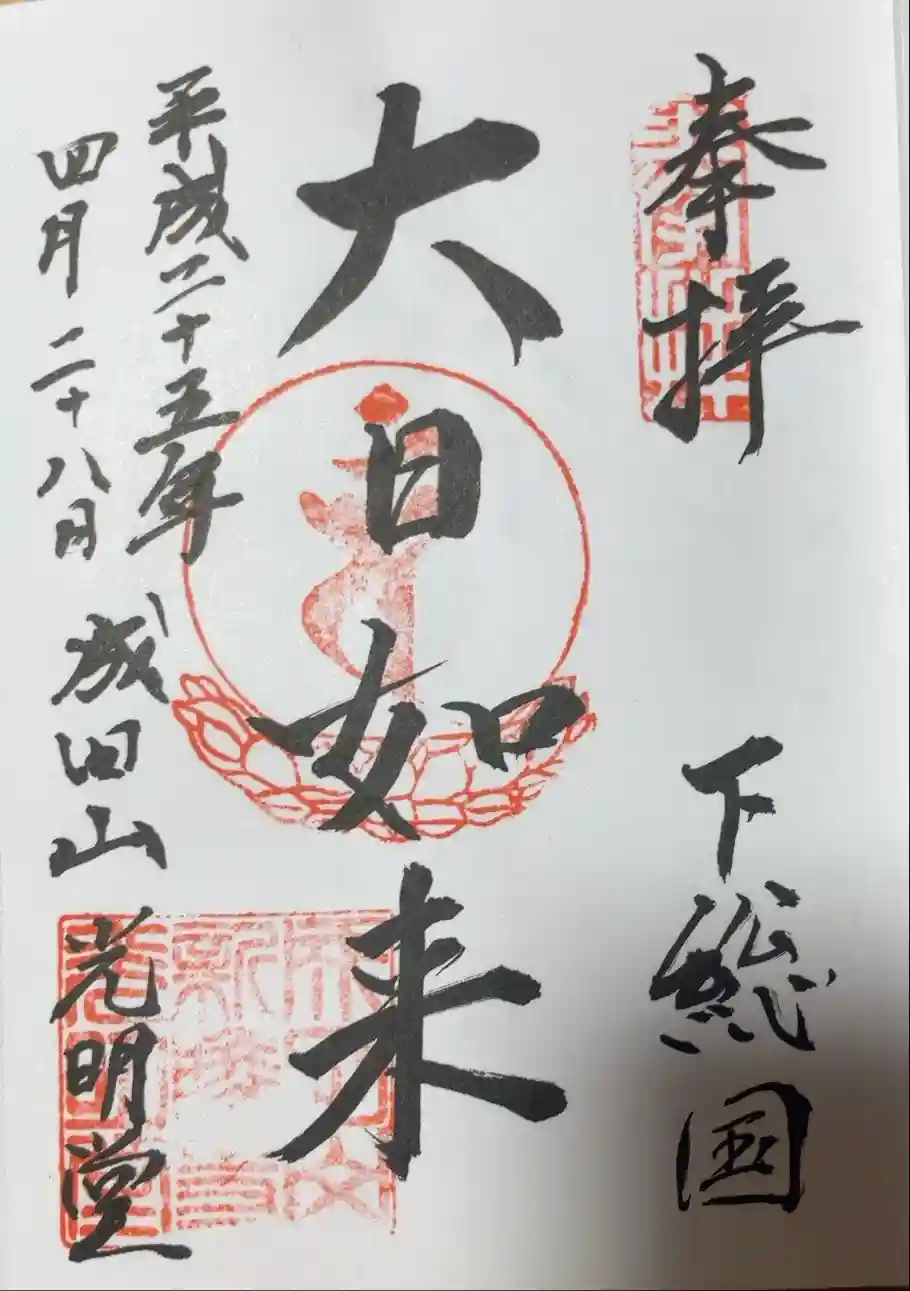 奉拝
下総国
大日如来
平成二十五年
四月二十八日
成田山
光明堂